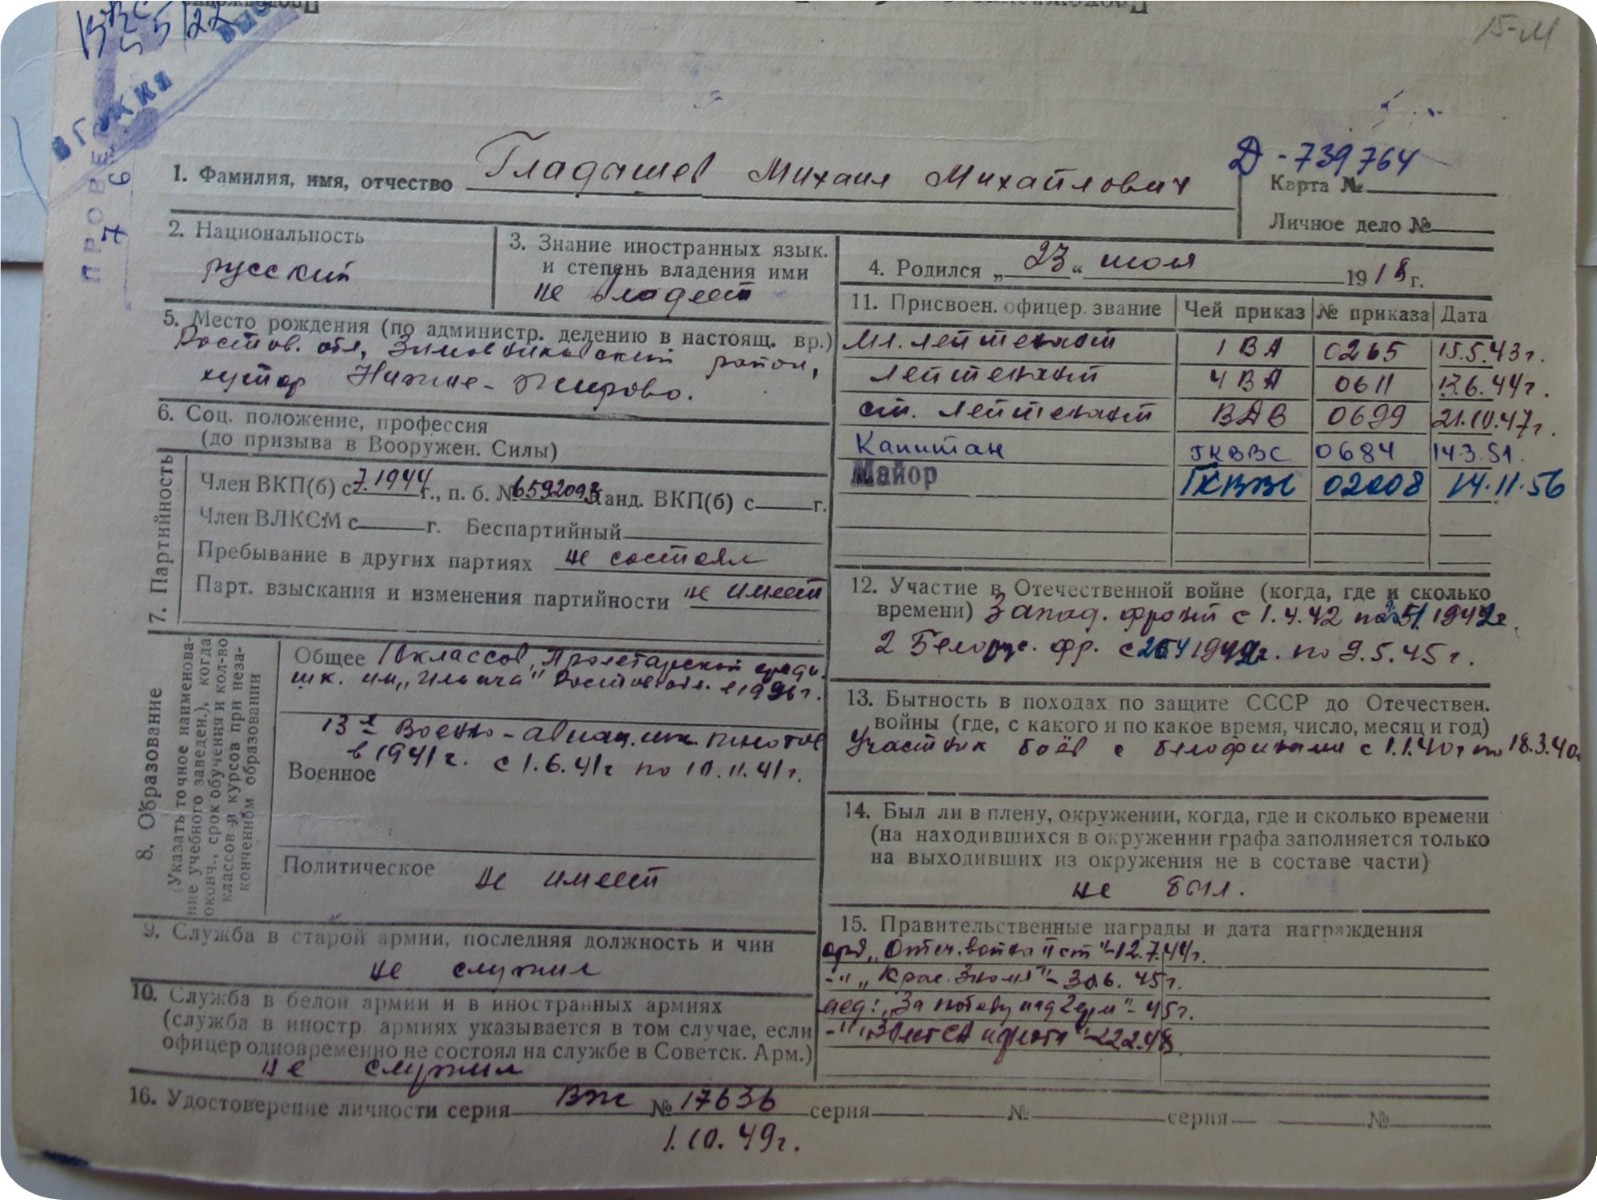 15-М
ВГ
ПРОВЕ
7 6
Д-739764
1. Фамилия, имя, отчество Гладышев Михаил Михайлович
Карта №
Личное дело №
2. Национальность
русский
3. Знание иностранных язык.
и степень владения ими
не владеет
4. Родился „ 23 “ июля 1918 г.
5. Место рождения (по администр. делению в настоящ. вр.)
Ростов. обл, Зимовниковский район,
хутор Нижне-Жирово.
6. Соц. положение, профессия
(до призыва в Вооружен. Силы)
7. Партийность
Член ВКП(б) с 7.1944 г., п. б. № 6592093 Канд. ВКП(б) с г.
Член ВЛКСМ с г. Беспартийный
Пребывание в других партиях не состоял
Парт. взыскания и изменения партийности не имеет
8. Образование
(Указать точное наименова-
ние учебного заведен.), когда
оконч., срок обучения и кол-во
классов и курсов при неза-
конченном образовании
Общее 10 классов, Пролетарской средн.
шк. им „Ильича" Ростов. обл. в 1936г.
13я Военно-авиац. шк. пилотов
в 1941г. с 1.6.41г по 10.11.41г.
Военное
Политическое не имеет
9. Служба в старой армии, последняя должность и чин
не служил
10. Служба в белой армии и в иностранных армиях
(служба в иностр армиях указывается в том случае, если
офицер одновременно не состоял на службе в Советск. Арм.)
не служил
11. Присвоен. офицер. звание Чей приказ № приказа Дата
Мл. лейтенант 1 ВА 0265 15.5.43г.
Лейтенант 4 ВА 0611 13.6.44г.
ст. лейтенант ВДВ 0699 21.10.47г.
Капитан ГКВВС 0684 14.3.51.
Майор ГКВВС 02008 14.11.56
12. Участие в Отечественной войне (когда, где и сколько
времени) Запад. фронт с 1.4.42 по 1942г.
2 Белорус. фр. с 194 г. по 9.5.45г.
13. Бытность в походах по защите СССР до Отечествен.
войны (где, с какого и по какое время, число, месяц и год)
Участник боёв с белофинами с 1.1.40г по 18.3.40
14. Был ли в плену, окружении, когда, где и сколько времени
(на находившихся в окружении графа заполняется только
на выходивших из окружения не в составе части)
не был.
15. Правительственные награды и дата награждения
орд „Отеч. война II ст"-12.7.44г.
-"- „Крас. Знамя"- 30.6.45г.
мед: „За победу над Герм"- 45г.
-"- „30 лет СА и флота"-22.2.48
16. Удостоверение личности серия ВЖ № 17636 серия № серия №
1.10.49г.